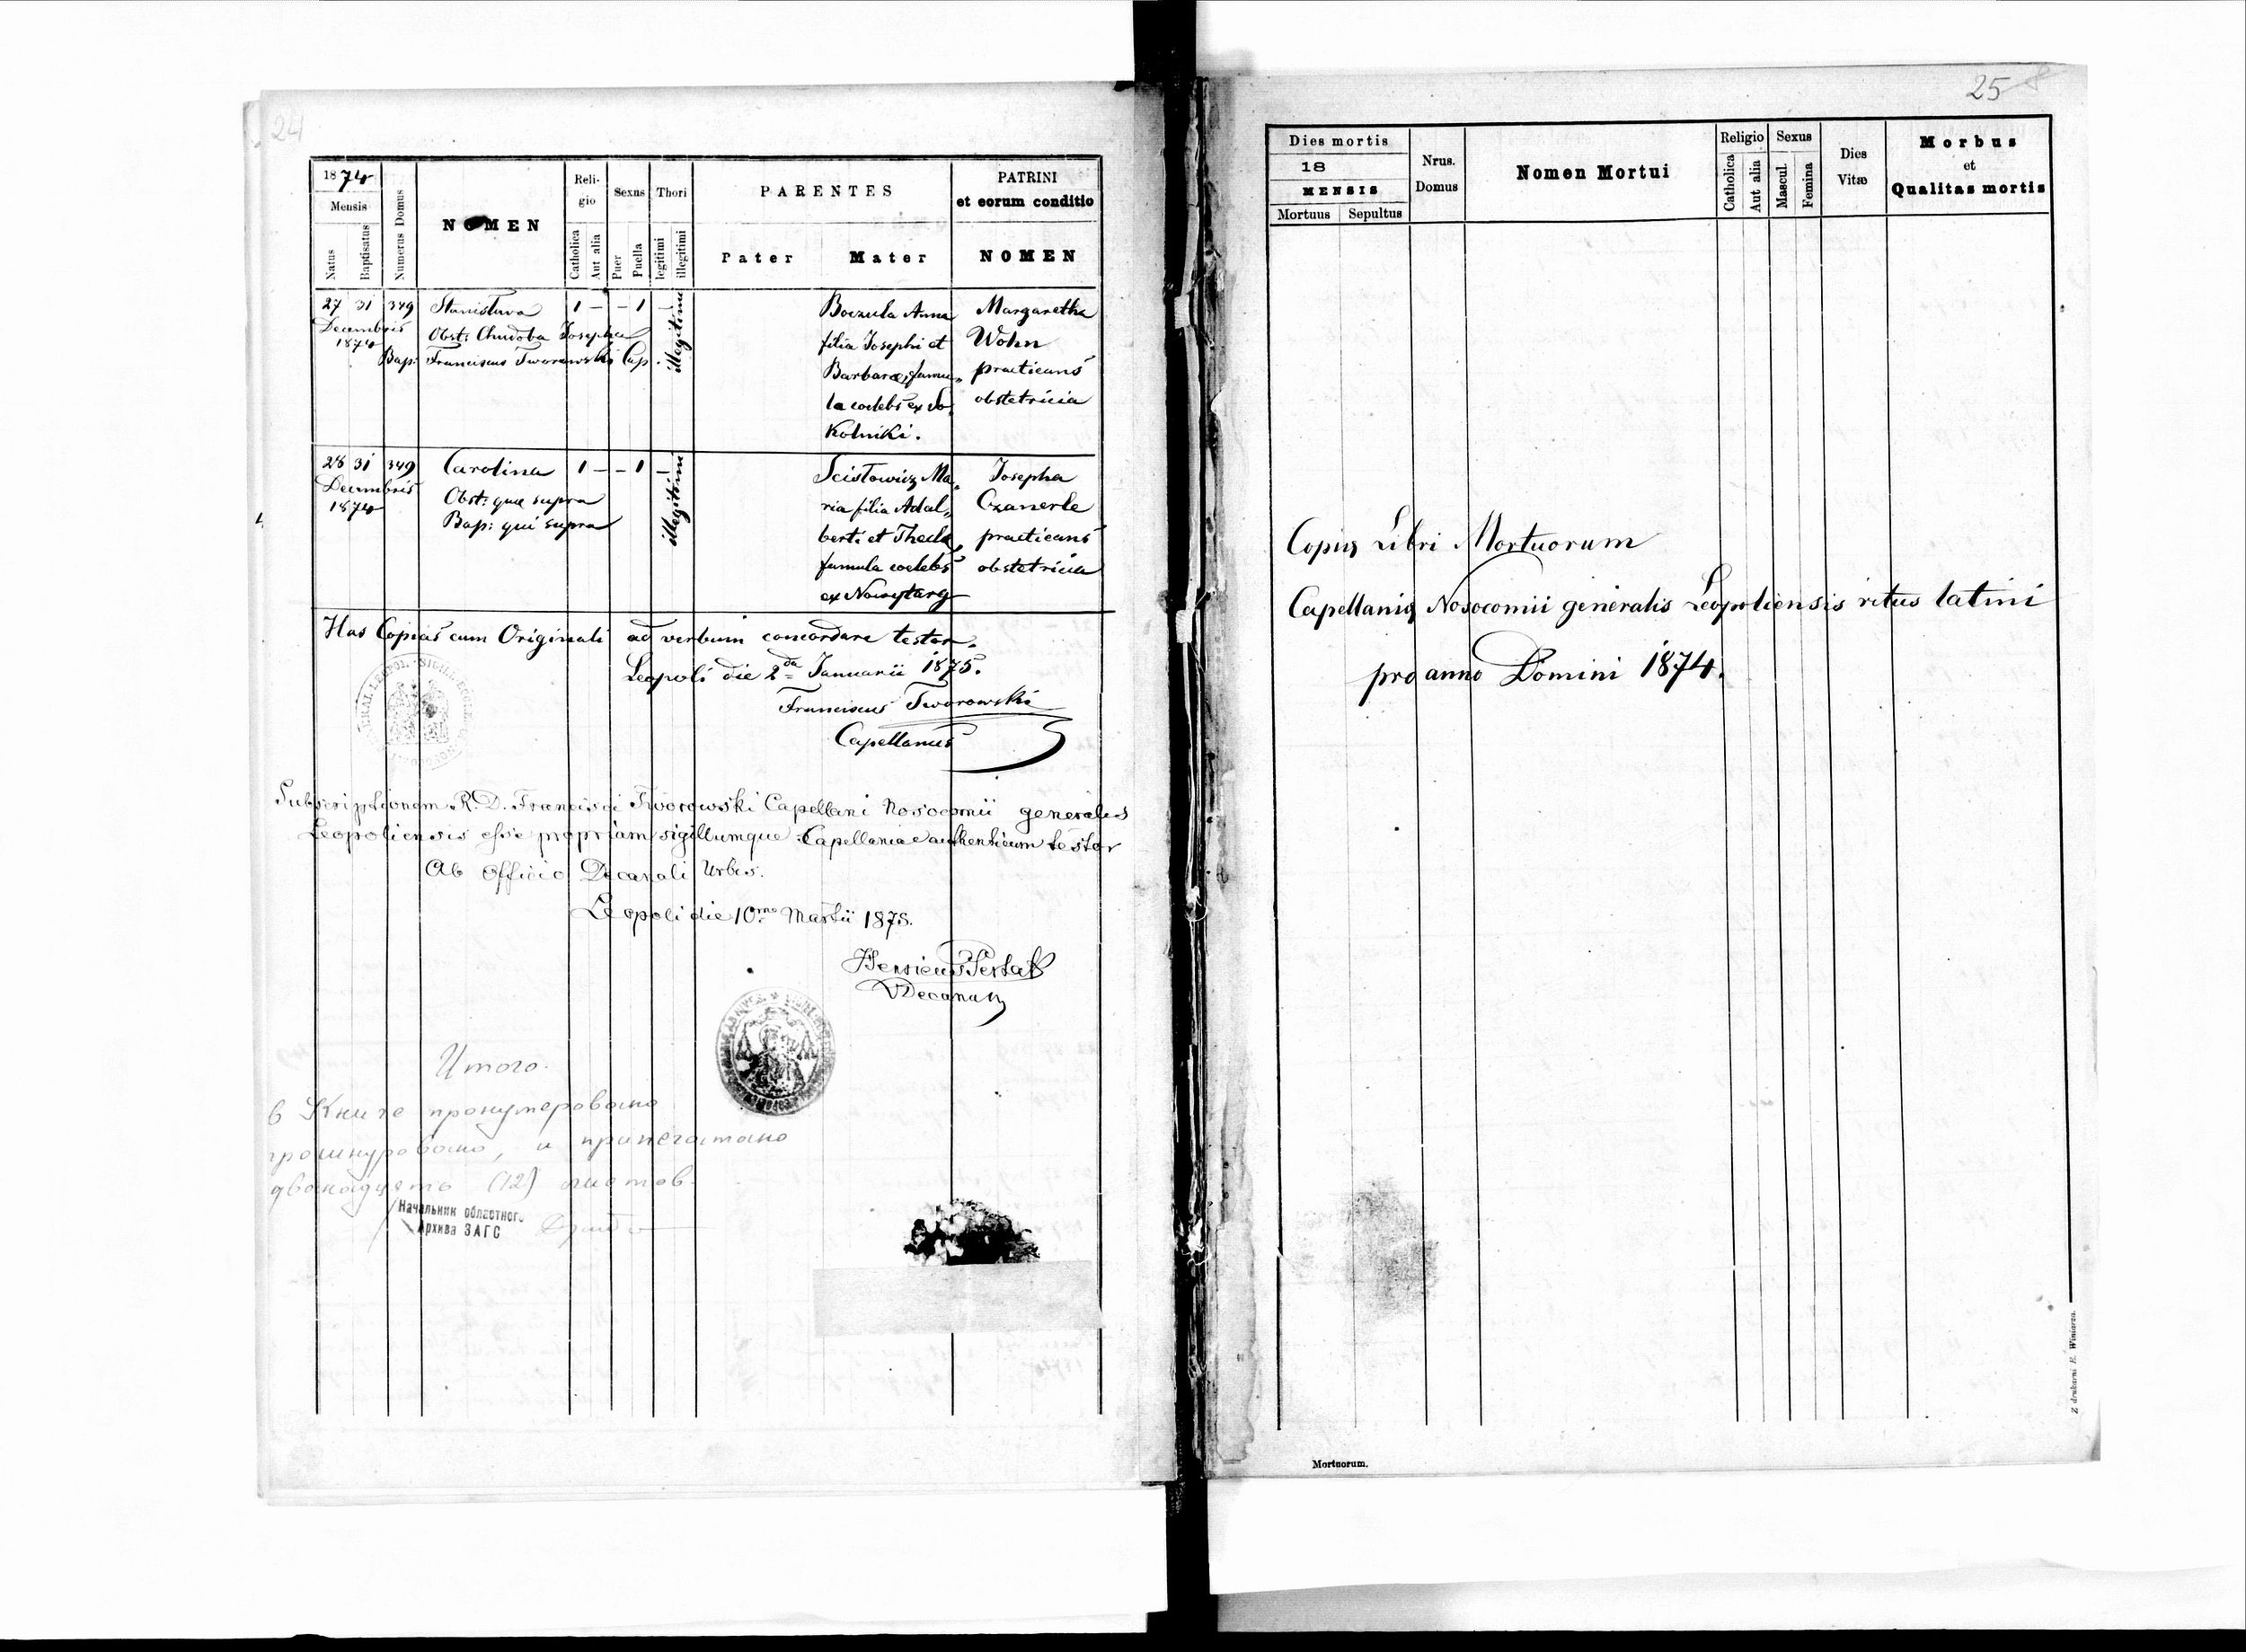 24
1874
Mensis
Natus
Baptisatus
Numerus Domus
NOMEN
Reli-
gio
Catholica
Aut alia
Sexus
Puer
Puella
Thori
legitimi
illegitimi
PARENTES
Pater
Mater
PATRINI
et eorum conditio
NOMEN
27 31 349 Stanislava 1 – – 1 –
Decembris
1874
Obst: Chudoba Josepha
Bap: Franciscus Tworowski Cap.
illegitimi
Boczula Anna
filia Josephi et
Barbarae, famu„
la coelebs ex So„
kolniki.
Margaretha
Wohn
practicans
obstetricia
28 31 349 Carolina 1 – – 1 –
Decembris
1874
Obst: quae supra
Bap: qui supra
illegitimi
Scistowicz Ma„
ria filia Adal„
berti et Thecla,
famula coelebs
ex Nowytarg
Josepha
Czanerle
practicans
obstetricia
Has Copias cum Originali ad verbum concordare testor.
Leopoli die 2da Januarii 1875.
Franciscus Tworowski
Capellanus
Subscriptionem R. D. Francisci Tworowski Capellani Nosocomii generalis
Leopoliensis esse propriam sigillumque Capellaniae authenticum testor
Ab Officio Decanali Urbis.
Leopoli die 10mo Martii 1875.
Henricus
VDecanus
Итого.
в Книге пронумеровано
прошнуровано, и припечатано
двенадцать (12) листов.
Начальник областного
Архива ЗАГС
25
Dies mortis
18
MENSIS
Mortuus
Sepultus
Nrus.
Domus
Nomen Mortui
Religio
Catholica
Aut alia
Sexus
Mascul.
Femina
Dies
Vitæ
Morbus
et
Qualitas mortis
Copia Libri Mortuorum
Capellaniae Nosocomii generalis Leopoliensis ritus latini
pro anno Domini 1874.
Z drukarni E. Winiarza.
Mortuorum.